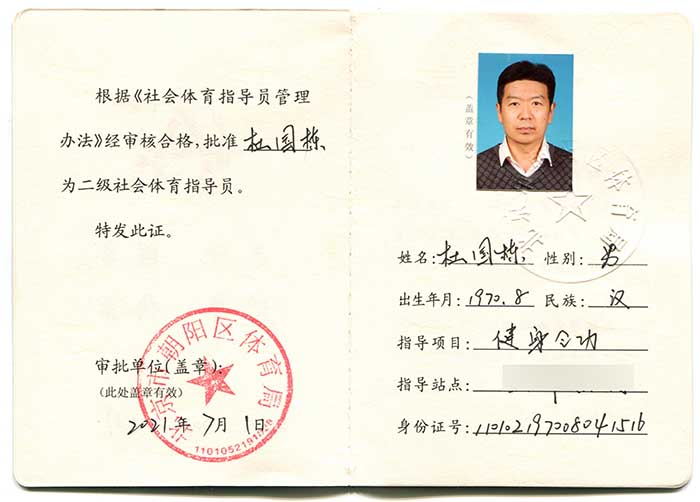 根据《社会体育指导员管理
办法》经审核合格,批准 杜国栋
为二级社会体育指导员。
特发此证。
审批单位(盖章):
(此处盖章有效)
2021年7月1日
北京市朝阳区体育局
(盖章有效)
姓名:杜国栋 性别:男
出生年月:1970.8 民族:汉
指导项目:健身气功
指导站点:
身份证号:110102197008041516